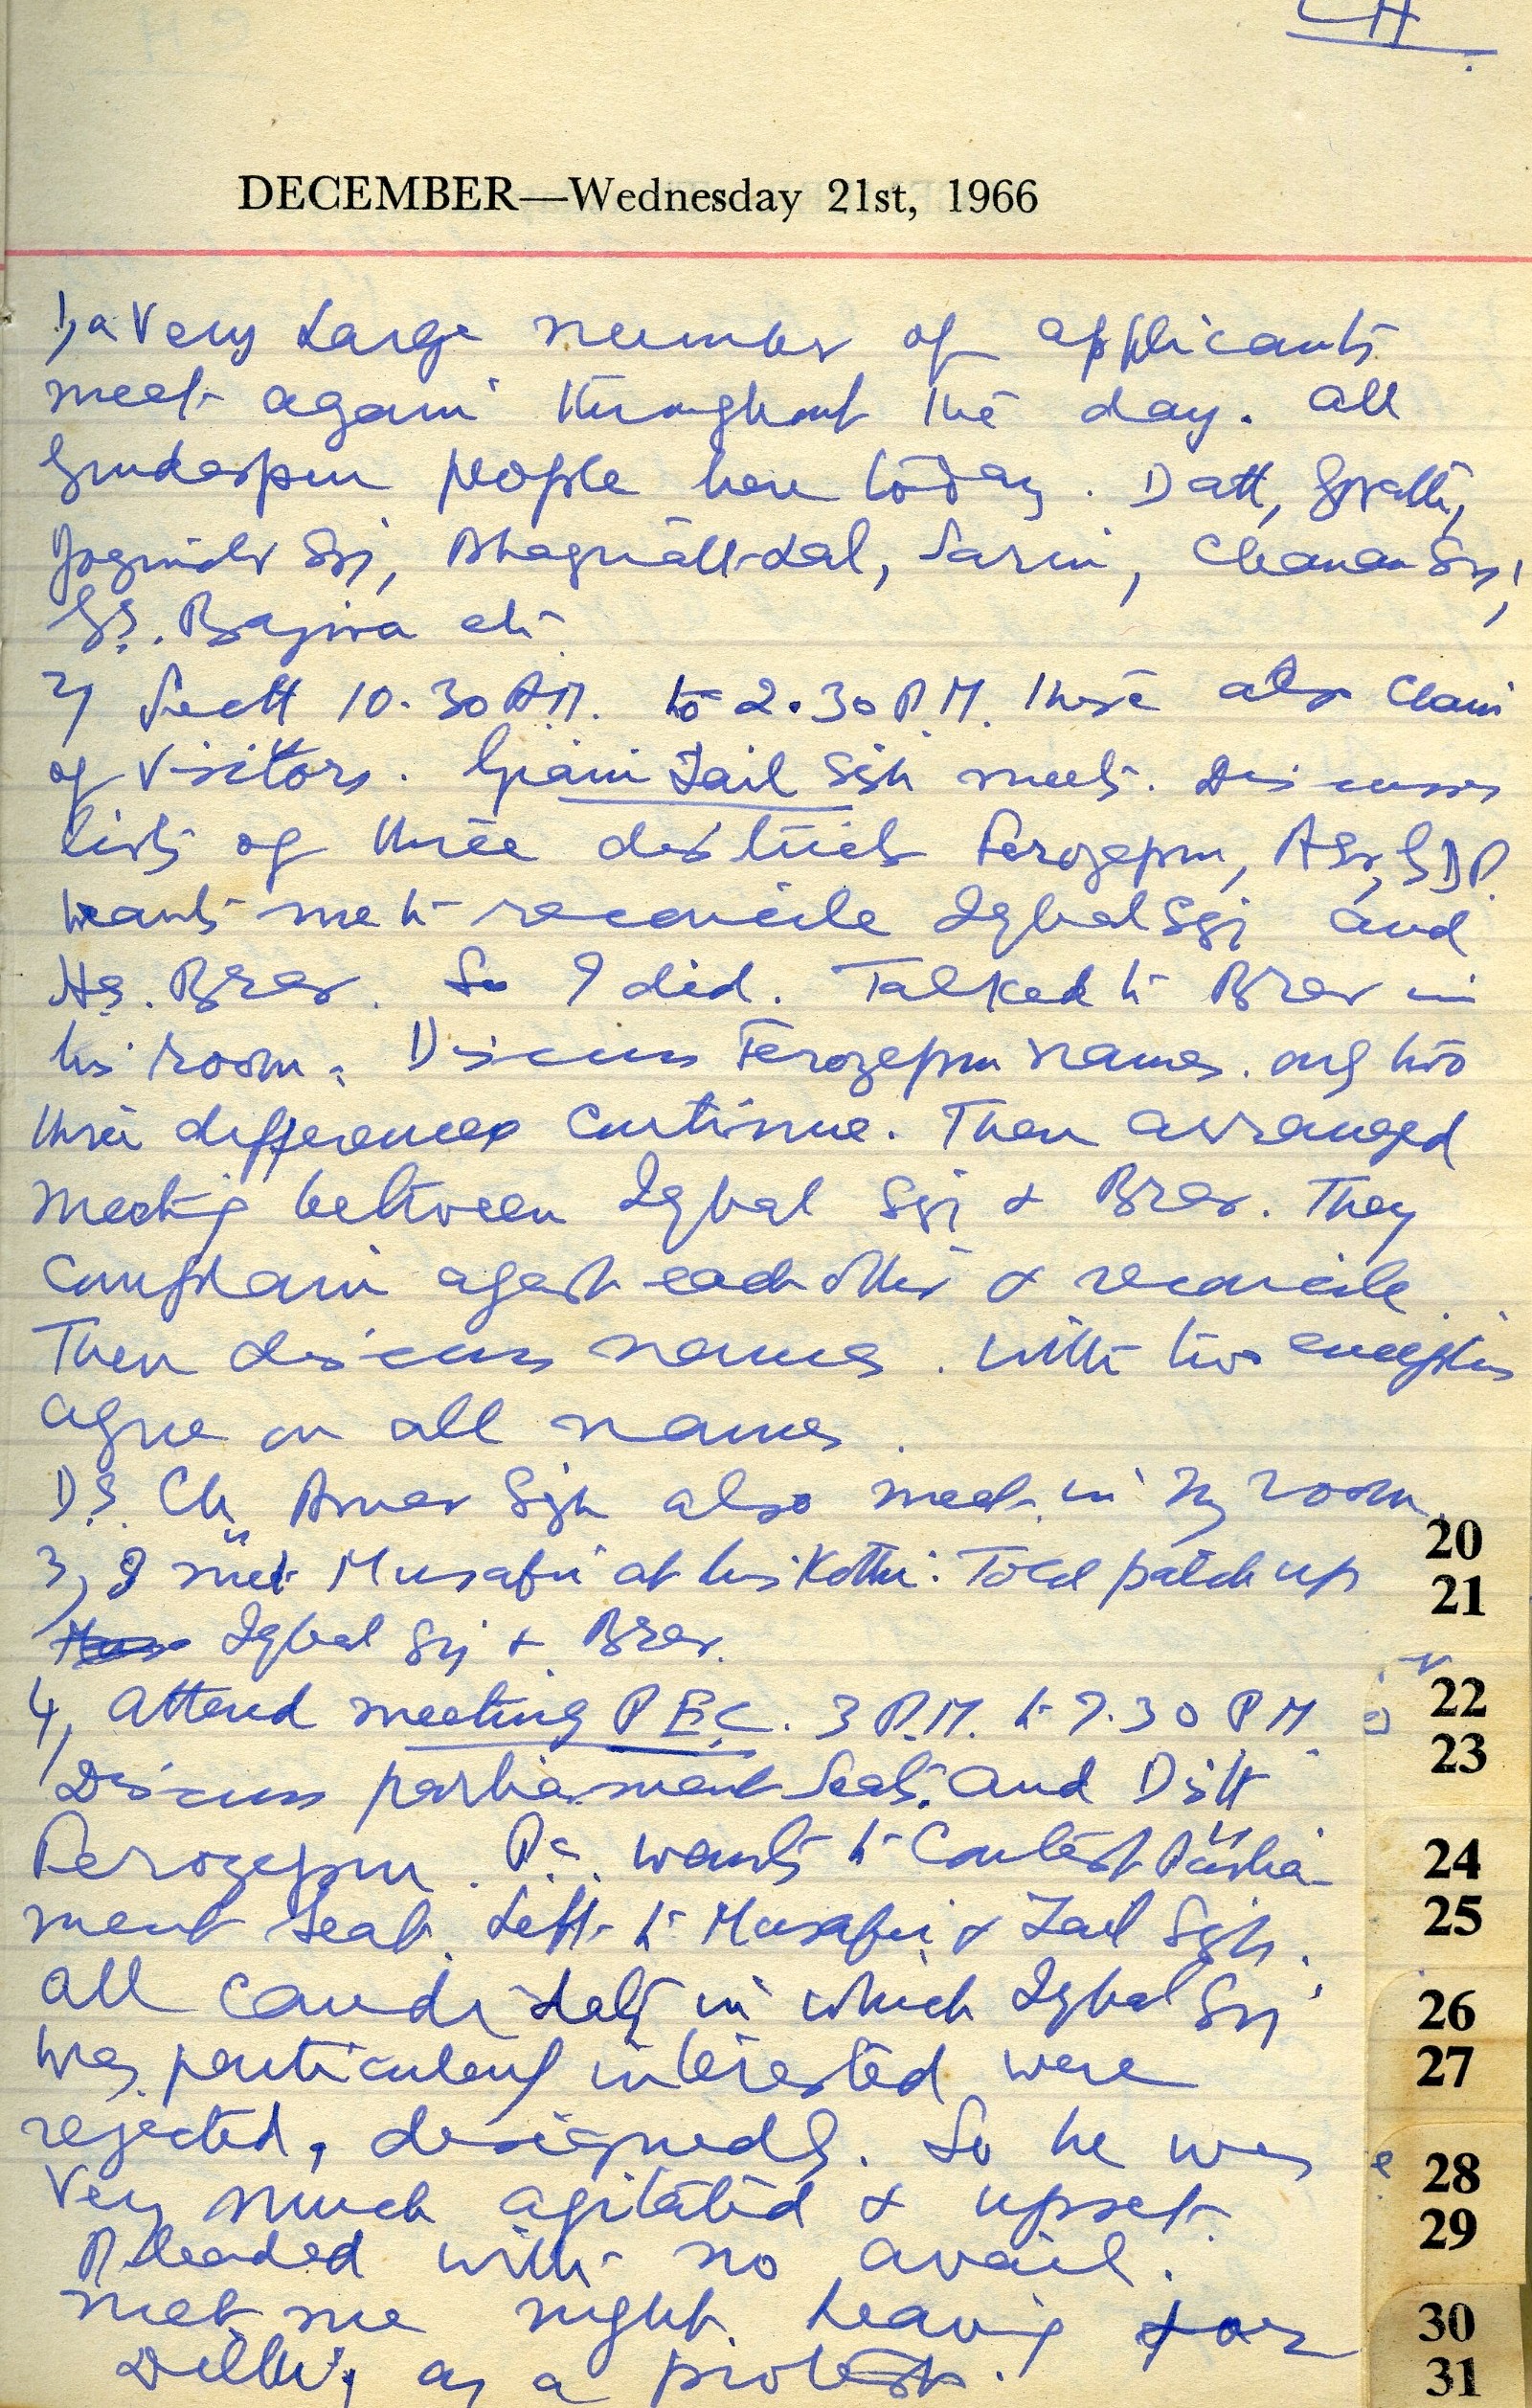 CH
DECEMBER—Wednesday 21st, 1966
1, a Very Large number of applicants
meet again throughout the day. All
Gurdaspur people here today. Datt,
Joginder Sgj, Bhagnath Lal, Sarin, Chanan Sgj,
GS. Bajwa etc
2, Sectt 10.30 A.M. to 2.30 P.M. there also
of Visitors. Giani Zail Sgh meets. Discusses
lists of three districts Ferozepur, ASr, GDP.
wants me to reconcile Iqbal Sgj and
HS. Brar. So I did. Talked to Brar in
his room. Discuss Ferozepur names. only two
three differences continue. Then arranged
meeting between Iqbal Sgj & Brar. They
complain agast each other & reconcile.
Then discuss names. With two exceptions
agree on all names.
D.S. Ch. Amar Sgh also meet in my room.
3, I met Musafir at his Kothi. Told patch up
Iqbal Sgj & Brar.
4, Attend meeting P.E.C. 3 P.M. to 7.30 P.M.
Discuss parliament seats and Distt
Ferozepur. wants to Contest Parlia-
ment Seat. Left to Musafir & Zail Sgh.
All candidates in which Iqbal Sgj
was particularly interested were
rejected, designedly. So he was
very much agitated & upset.
Pleaded with no avail.
Met me night. Leaving for
Delhi, as a protest.
20
21
22
23
24
25
26
27
28
29
30
31